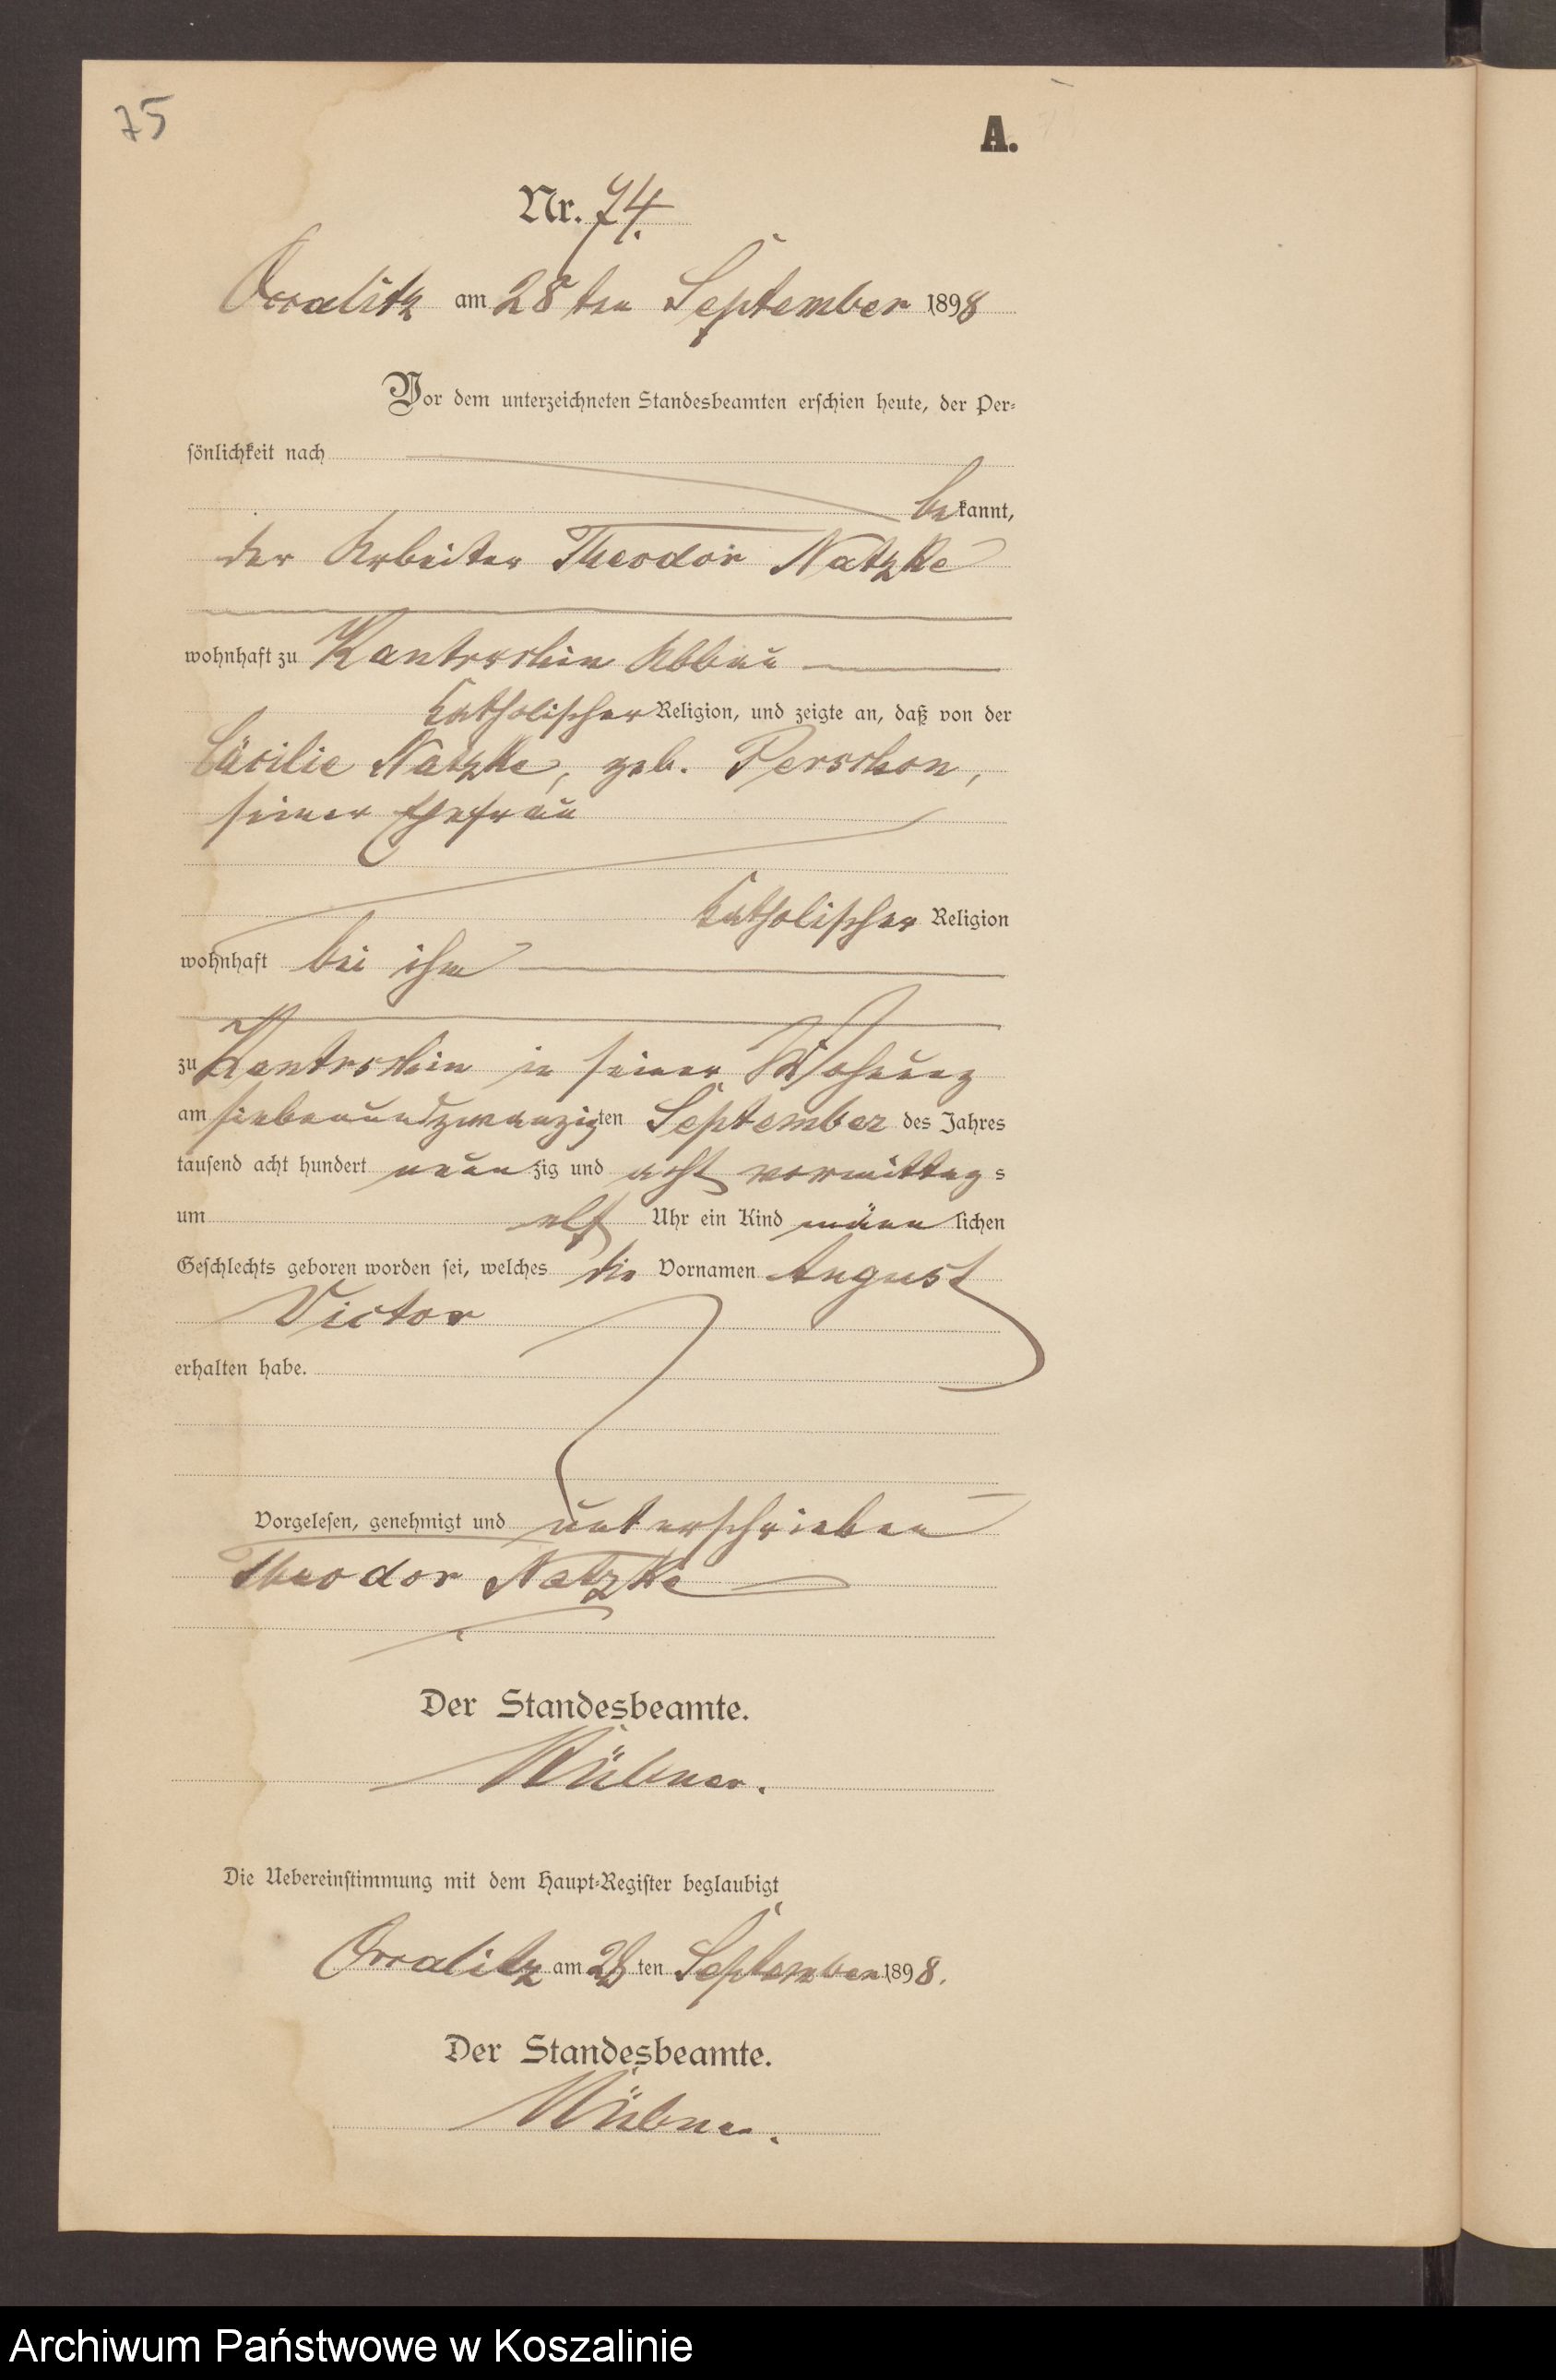 75
A.
Nr. 74.
am 28 ten September 1898
Vor dem unterzeichneten Standesbeamten erschien heute, der Per-
sönlichkeit nach
bekannt,
der Arbeiter Theodor Natzke
wohnhaft zu Kantrschin Abbau
katholischer Religion, und zeigte an, daß von der
Cäcilie Natzke, geb. Perschon,
seiner Ehefrau
katholischer Religion
wohnhaft bei ihm
zu Kantrschin in seiner Wohnung
am siebenundzwanzigten September des Jahres
tausend acht hundert neunzig und acht vormittags
um elf Uhr ein Kind männlichen
Geschlechts geboren worden sei, welches die Vornamen August
Victor
erhalten habe.
Vorgelesen, genehmigt und unterschrieben
Theodor Natzke
Der Standesbeamte.
Die Uebereinstimmung mit dem Haupt-Register beglaubigt
am 28 ten September 1898.
Der Standesbeamte.
Archiwum Państwowe w Koszalinie